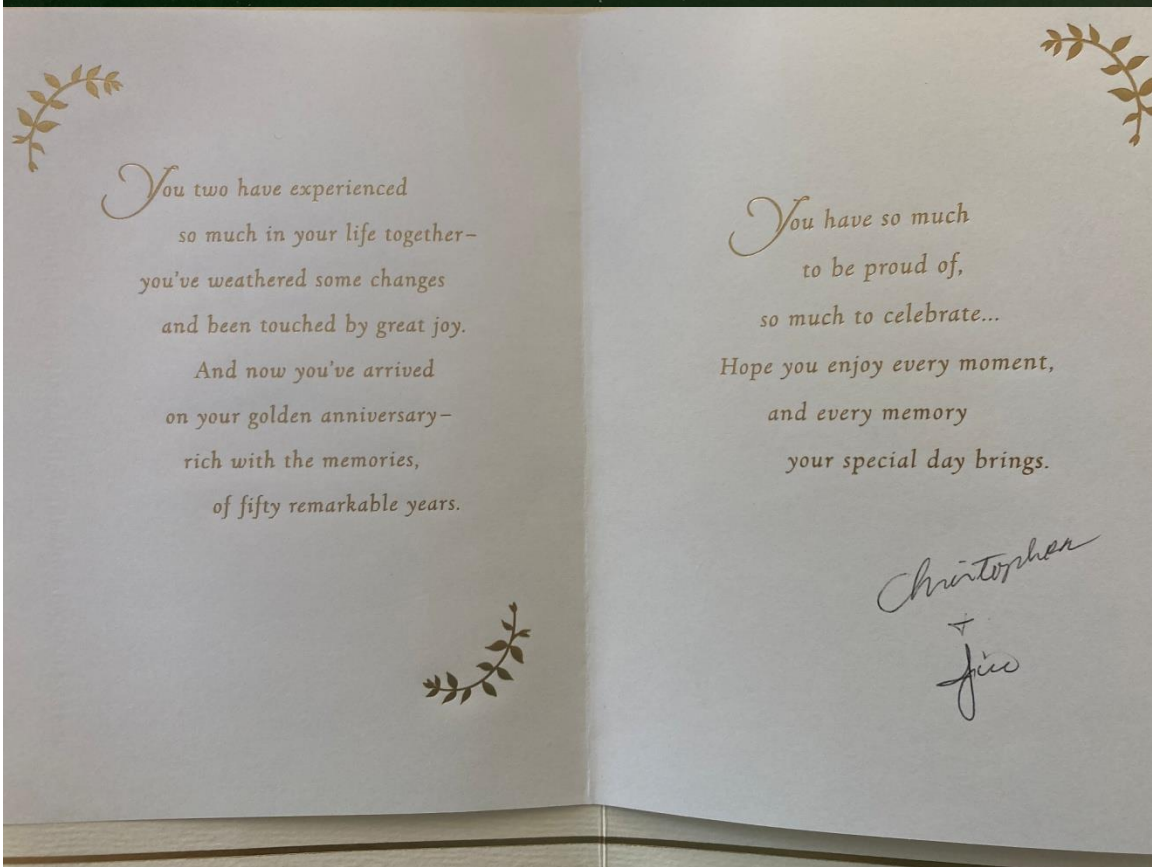 You two have experienced
so much in your life together–
you've weathered some changes
and been touched by great joy.
And now you've arrived
on your golden anniversary–
rich with the memories,
of fifty remarkable years.
You have so much
to be proud of,
so much to celebrate...
Hope you enjoy every moment,
and every memory
your special day brings.
Christopher
+